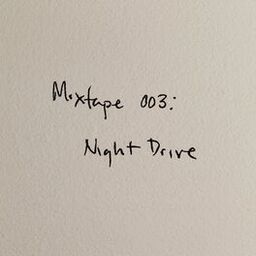 Mixtape 003:
Night Drive